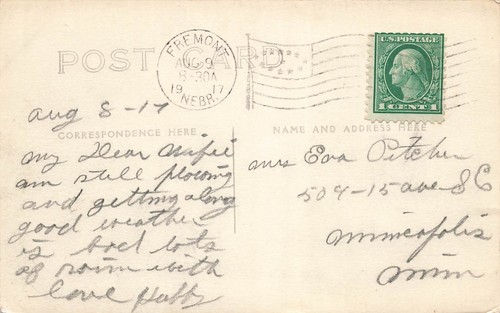 POST CARD
FREMONT
AUG 9
8-30A
1917
NEBR.
U.S. POSTAGE
1 CENT 1
Aug 8-17
CORRESPONDENCE HERE
NAME AND ADDRESS HERE
My Dear Wifie
am still plowing
and getting along
good weather
is bad lots
of rain with
love Hubby
Mrs Eva Pitcher
504-15 ave S E
Minneapolis
Minn